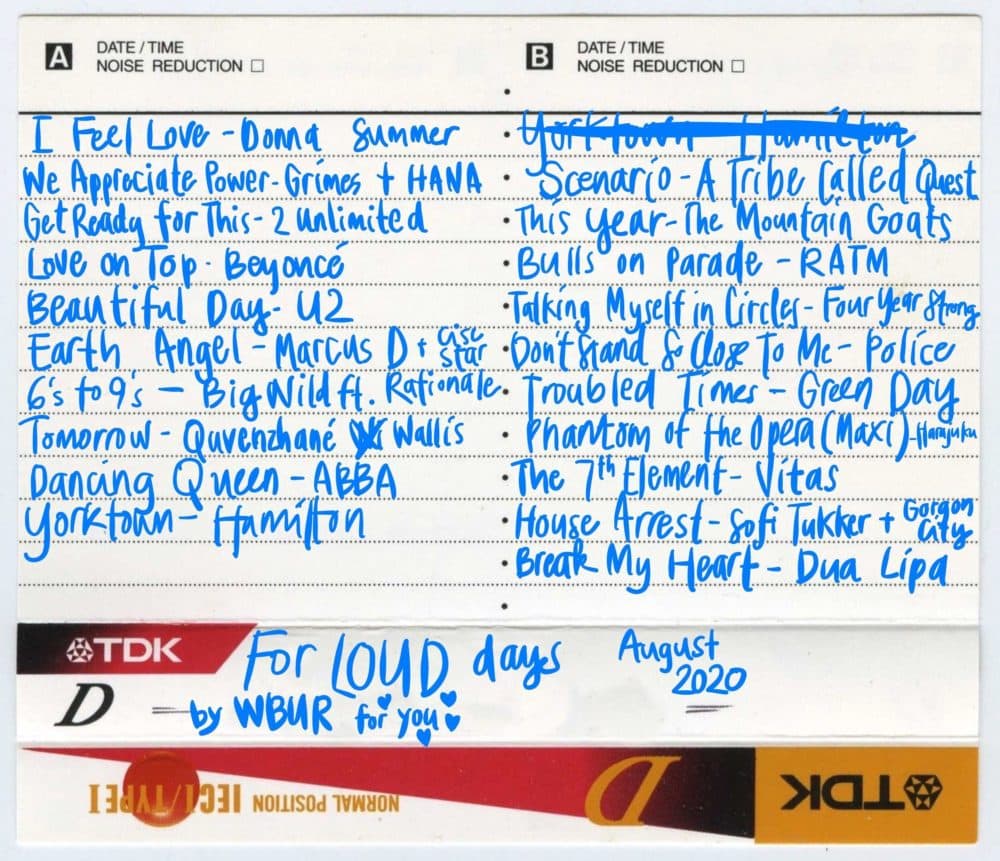 A DATE / TIME
NOISE REDUCTION
I Feel Love - Donna Summer
We Appreciate Power - Grimes + HANA
Get Ready for This - 2 Unlimited
Love on Top - Beyoncé
Beautiful Day - U2
Earth Angel - Marcus D + Cise Star
6's to 9's - Big Wild ft. Rationale
Tomorrow - Quvenzhané Wallis
Dancing Queen - ABBA
Yorktown - Hamilton
B DATE / TIME
NOISE REDUCTION
Yorktown - Hamilton
Scenario - A Tribe Called Quest
This Year - The Mountain Goats
Bulls on Parade - RATM
Talking Myself in Circles - Four Year Strong
Don't Stand So Close To Me - Police
Troubled Times - Green Day
Phantom of the Opera (Maxi) - Harajuku
The 7th Element - Vitas
House Arrest - Sofi Tukker + Gorgon City
Break My Heart - Dua Lipa
TDK
D
For LOUD days
by WBUR for you
August
2020
NORMAL POSITION IEC I / TYPE I
D
TDK